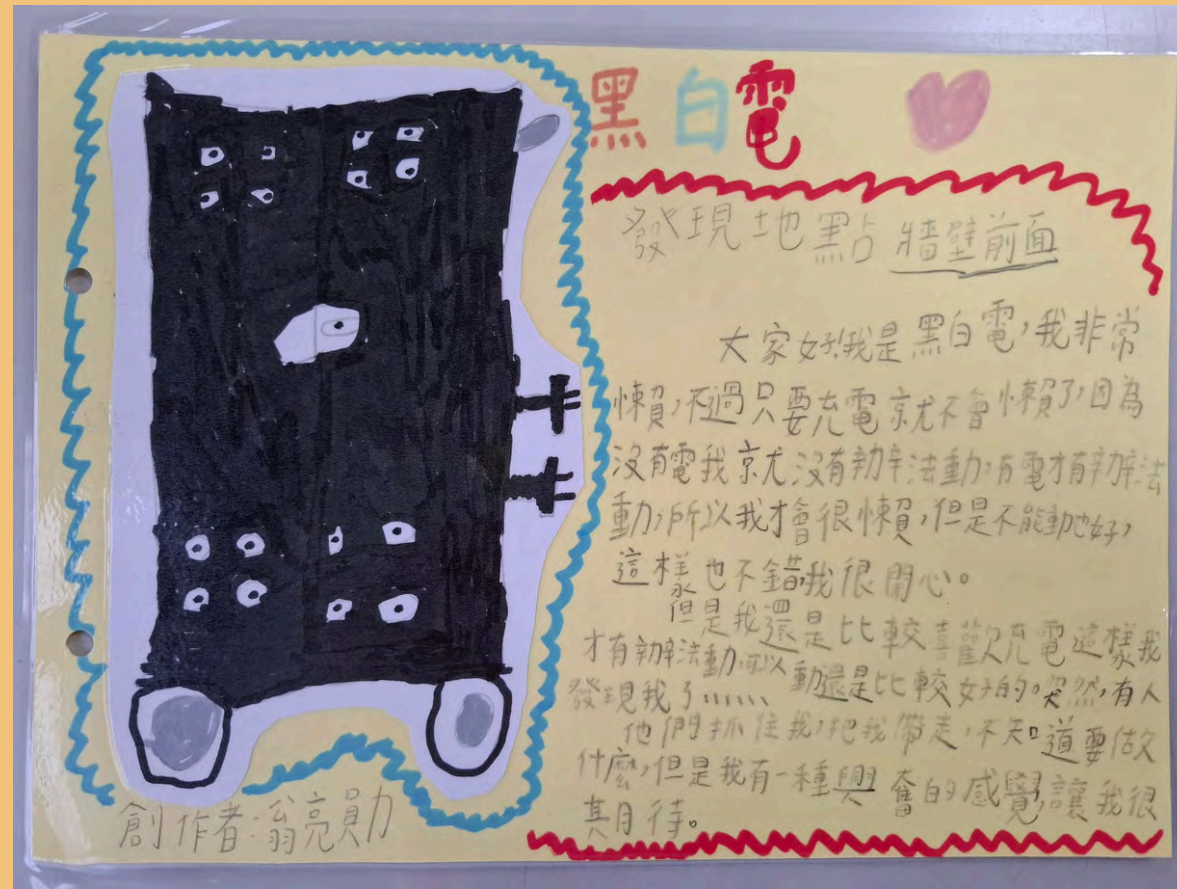 黑白電
發現地點 牆壁前面
大家好!我是黑白電,我非常
懶,不過只要充電就不會懶了,因為
沒有電我就沒有辦法動,有電才有辦法
動,所以我才會很懶,但是不能動也好,
這樣也不錯,我很開心。
但是我還是比較喜歡充電這樣我
才有辦法動,可以動還是比較好的。突然,有人
發現我了……
他們抓住我,把我帶走,不知道要做
什麼,但是我有一種興奮的感覺,讓我很
期待。
創作者:翁亮勛